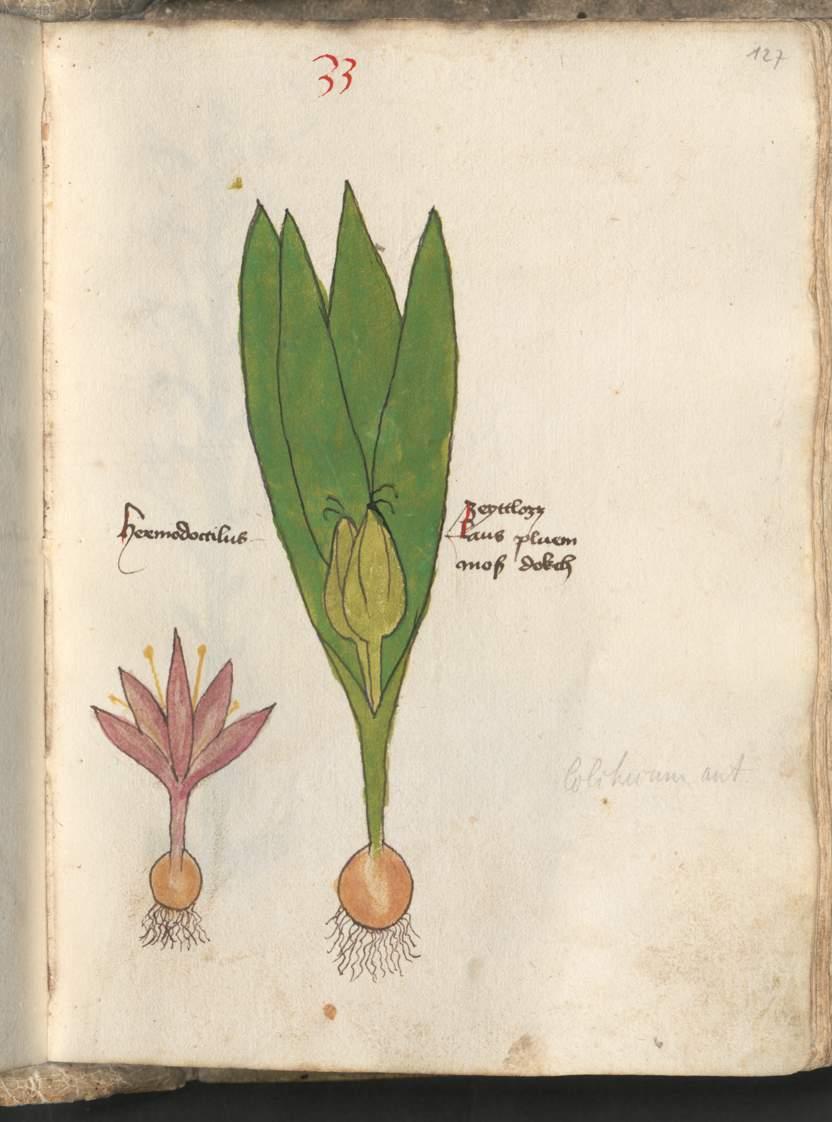 127
33
Hermodoctilus
Zeyttlozy
Laus pluem
moß dokch
Colchicum aut.